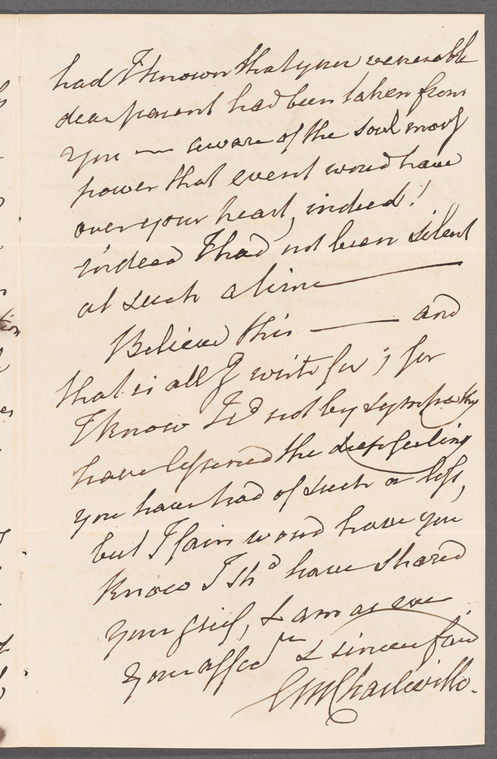 had I known that your venerable
dear parent had been taken from
you — aware of the soul moving
power that event would have
over your heart, indeed!
indeed I had not been silent
at such a time —
Believe this — and
that is all I write for; for
I know I cd not by sympathy
have lessened the deep feeling
you have had of such a loss,
but I fain would have you
know I shd have shared
your grief, & am as ever
your affec & sincere
CM Charleville.